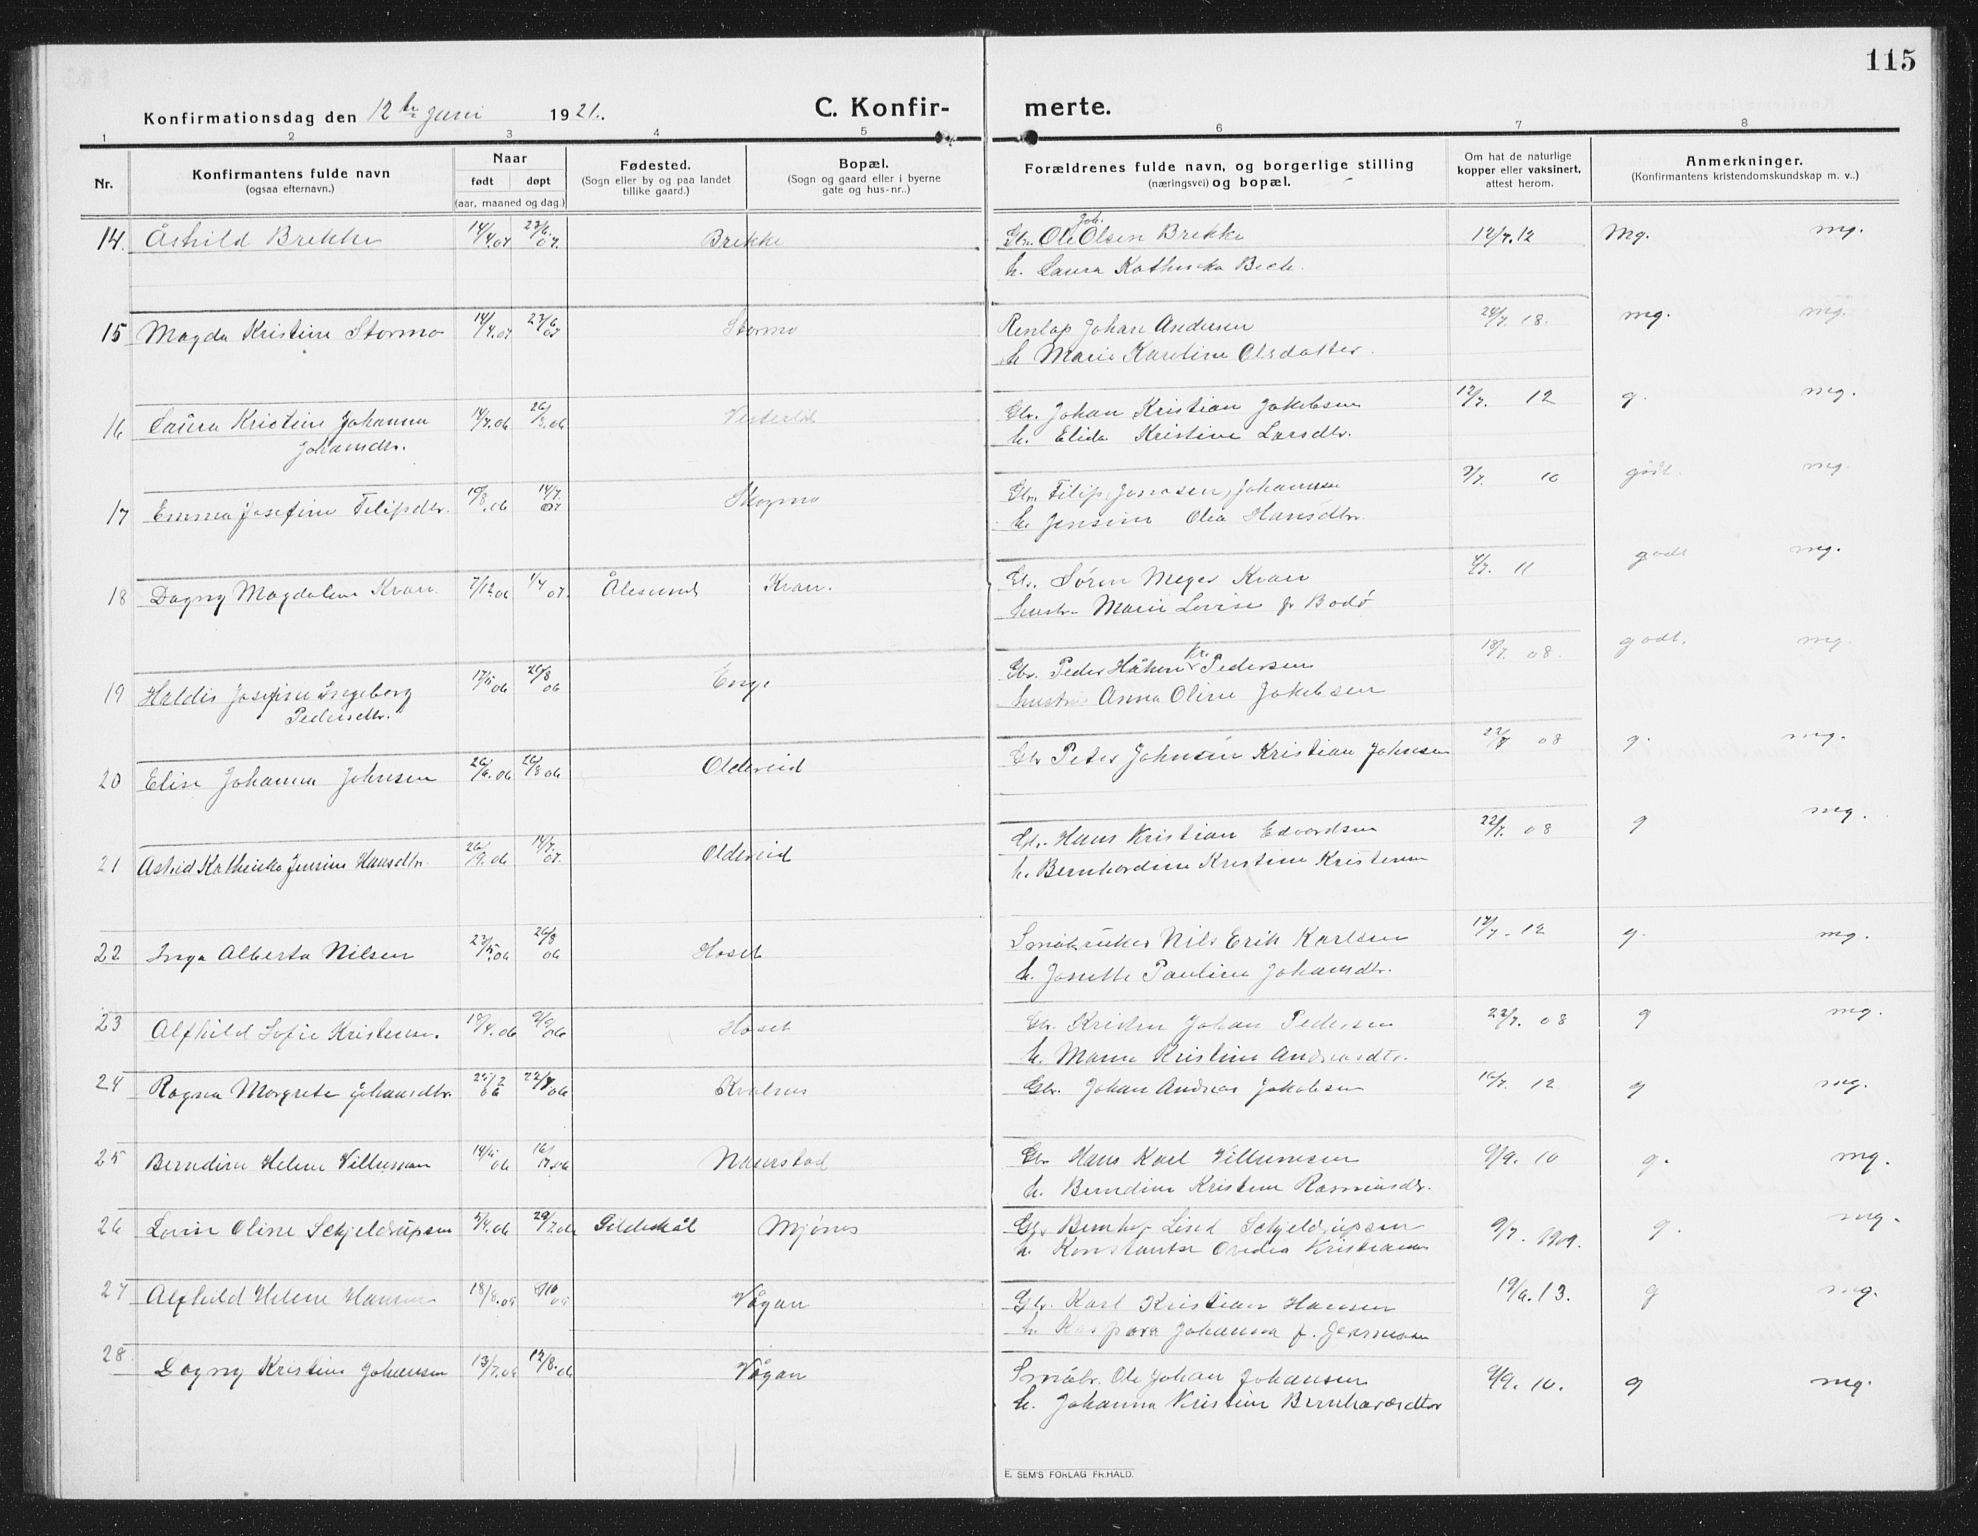 115
Konfirmationsdag den 12te Juni 1921.
C. Konfirmerte.
1 2 3 4 5 6 7 8
Nr.
Konfirmantens fulde navn
(ogsaa efternavn.)
Naar
født døpt
(aar, maaned og dag.)
Fødested.
(Sogn eller by og paa landet
tillike gaard.)
Bopæl.
(Sogn og gaard eller i byerne
gate og hus-nr..)
Forældrenes fulde navn, og borgerlige stilling
(næringsvei) og bopæl.
Om hat de naturlige
kopper eller vaksinert,
attest herom.
Anmerkninger.
(Konfirmantens kristendomskundskap m. v..)
14. Åshild Brekke 14/4.07 23/6.07. Brekke Gbr. Ole Joh. Olsen Brekke 12/7.12 Mg. mg.
h. Laura Kathinka Bech.
15 Magda Kristine Stormo 14/4.07 23/6 07 Stormo Johan Andersen 24/7 18. mg. mg.
h. Marie Karoline Olsdatter.
16 Laura Kristine Johanna 14/7.06 26/8.06 Gbr. Johan Kristian Jakobsen 12/7. 12 g. mg.
Johansdtr. h. Elida Kristine Larsdtr.
17 Emma Josefine Filipsdtr. 10/8.06 14/7. 07 Skogmo Gbr. Filip Jonasen Johannsen 9/7. 10 godt. mg.
h. Jensine Olea Hansdtr.
18 Dagny Magdalene Kvan. 7/12 06 1/4 07. Ålesund Kvan. Gbr. Søren Meyer Kvan 4/7. 11 godt mg.
hustr. Marie Lovise fr Bodø
19 Haldis Josefine Ingeborg 17/5 06 26/8 06 Enge Gbr. Peder Håkon Kr. Pedersen 18/7. 08. godt. mg.
Pedersdtr. hustru Anna Oline Jakobsen
20 Elise Johanna Johnsen 26/6.06 26/8 06 Oldereid Gbr Peter Johnsen Kristian Johnsen 22/7 08 g. mg.
21 Astrid Kathinka Jensine Hansdtr. 26/9.06 14/7. 07. Oldereid Gbr. Hans Kristian Edvardsen 22/7. 08 g mg.
h. Bernhardine Kristine Kristensen
22 Inga Alberta Nilsen 23/5.06 26/8 06 Hoset Småbruker Nils Erik Karlsen 17/7. 12 g. mg.
h. Jonette Pauline Johansdtr.
23 Alfhild Sofie Kristensen. 18/4.06 9/9 06 Hoset Gbr. Kristen Johan Pedersen 22/7. 08 g mg.
h. Marna Kristine Andreasdtr.
24 Ragna Margrete Johansdtr. 25/2 06 22/7 06 Kvalnes Gbr. Johan Andreas Jakobsen 16/7. 12 g mg.
25 Berndine Helene Villumsen 14/5 06 16/7.06 Naurstad Gbr Hans Karl Villumsen 9/9. 10 g. mg.
h. Berndine Kristine Rasmusdtr.
26 Lovise Oline Schjeldrupsen 5/4.06 29/7.06 Gildeskål Mjønes Gbr Schjeldrupsen 9/7. 1909. g. mg.
h. Konstantse Ovedia Kristiansen
27 Alfhild Helene Hansen 18/8.05 8/10 05 Vågan Gbr. Karl Kristian Hansen 19/6.13. g mg.
h. Kaspara Johanna f. Jensen
28. Dagny Kristine Johansen 13/7.06 12/8.06 Vågan Småbr. Ole Johan Johansen 9/9. 10. g mg.
h. Johanna Kristine Bernhardsdtr
E. SEM'S FORLAG FR.HALD.